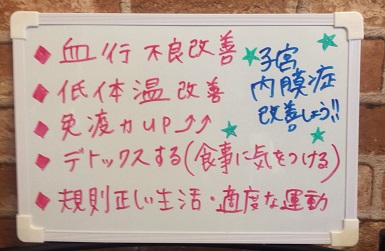 ◆ 血行不良改善
◆ 低体温改善
◆ 免疫力UP↑↑
◆ デトックスする(食事に気をつける)
◆ 規則正しい生活・適度な運動
★子宮★
内膜症
改善しよう!!
★ ★